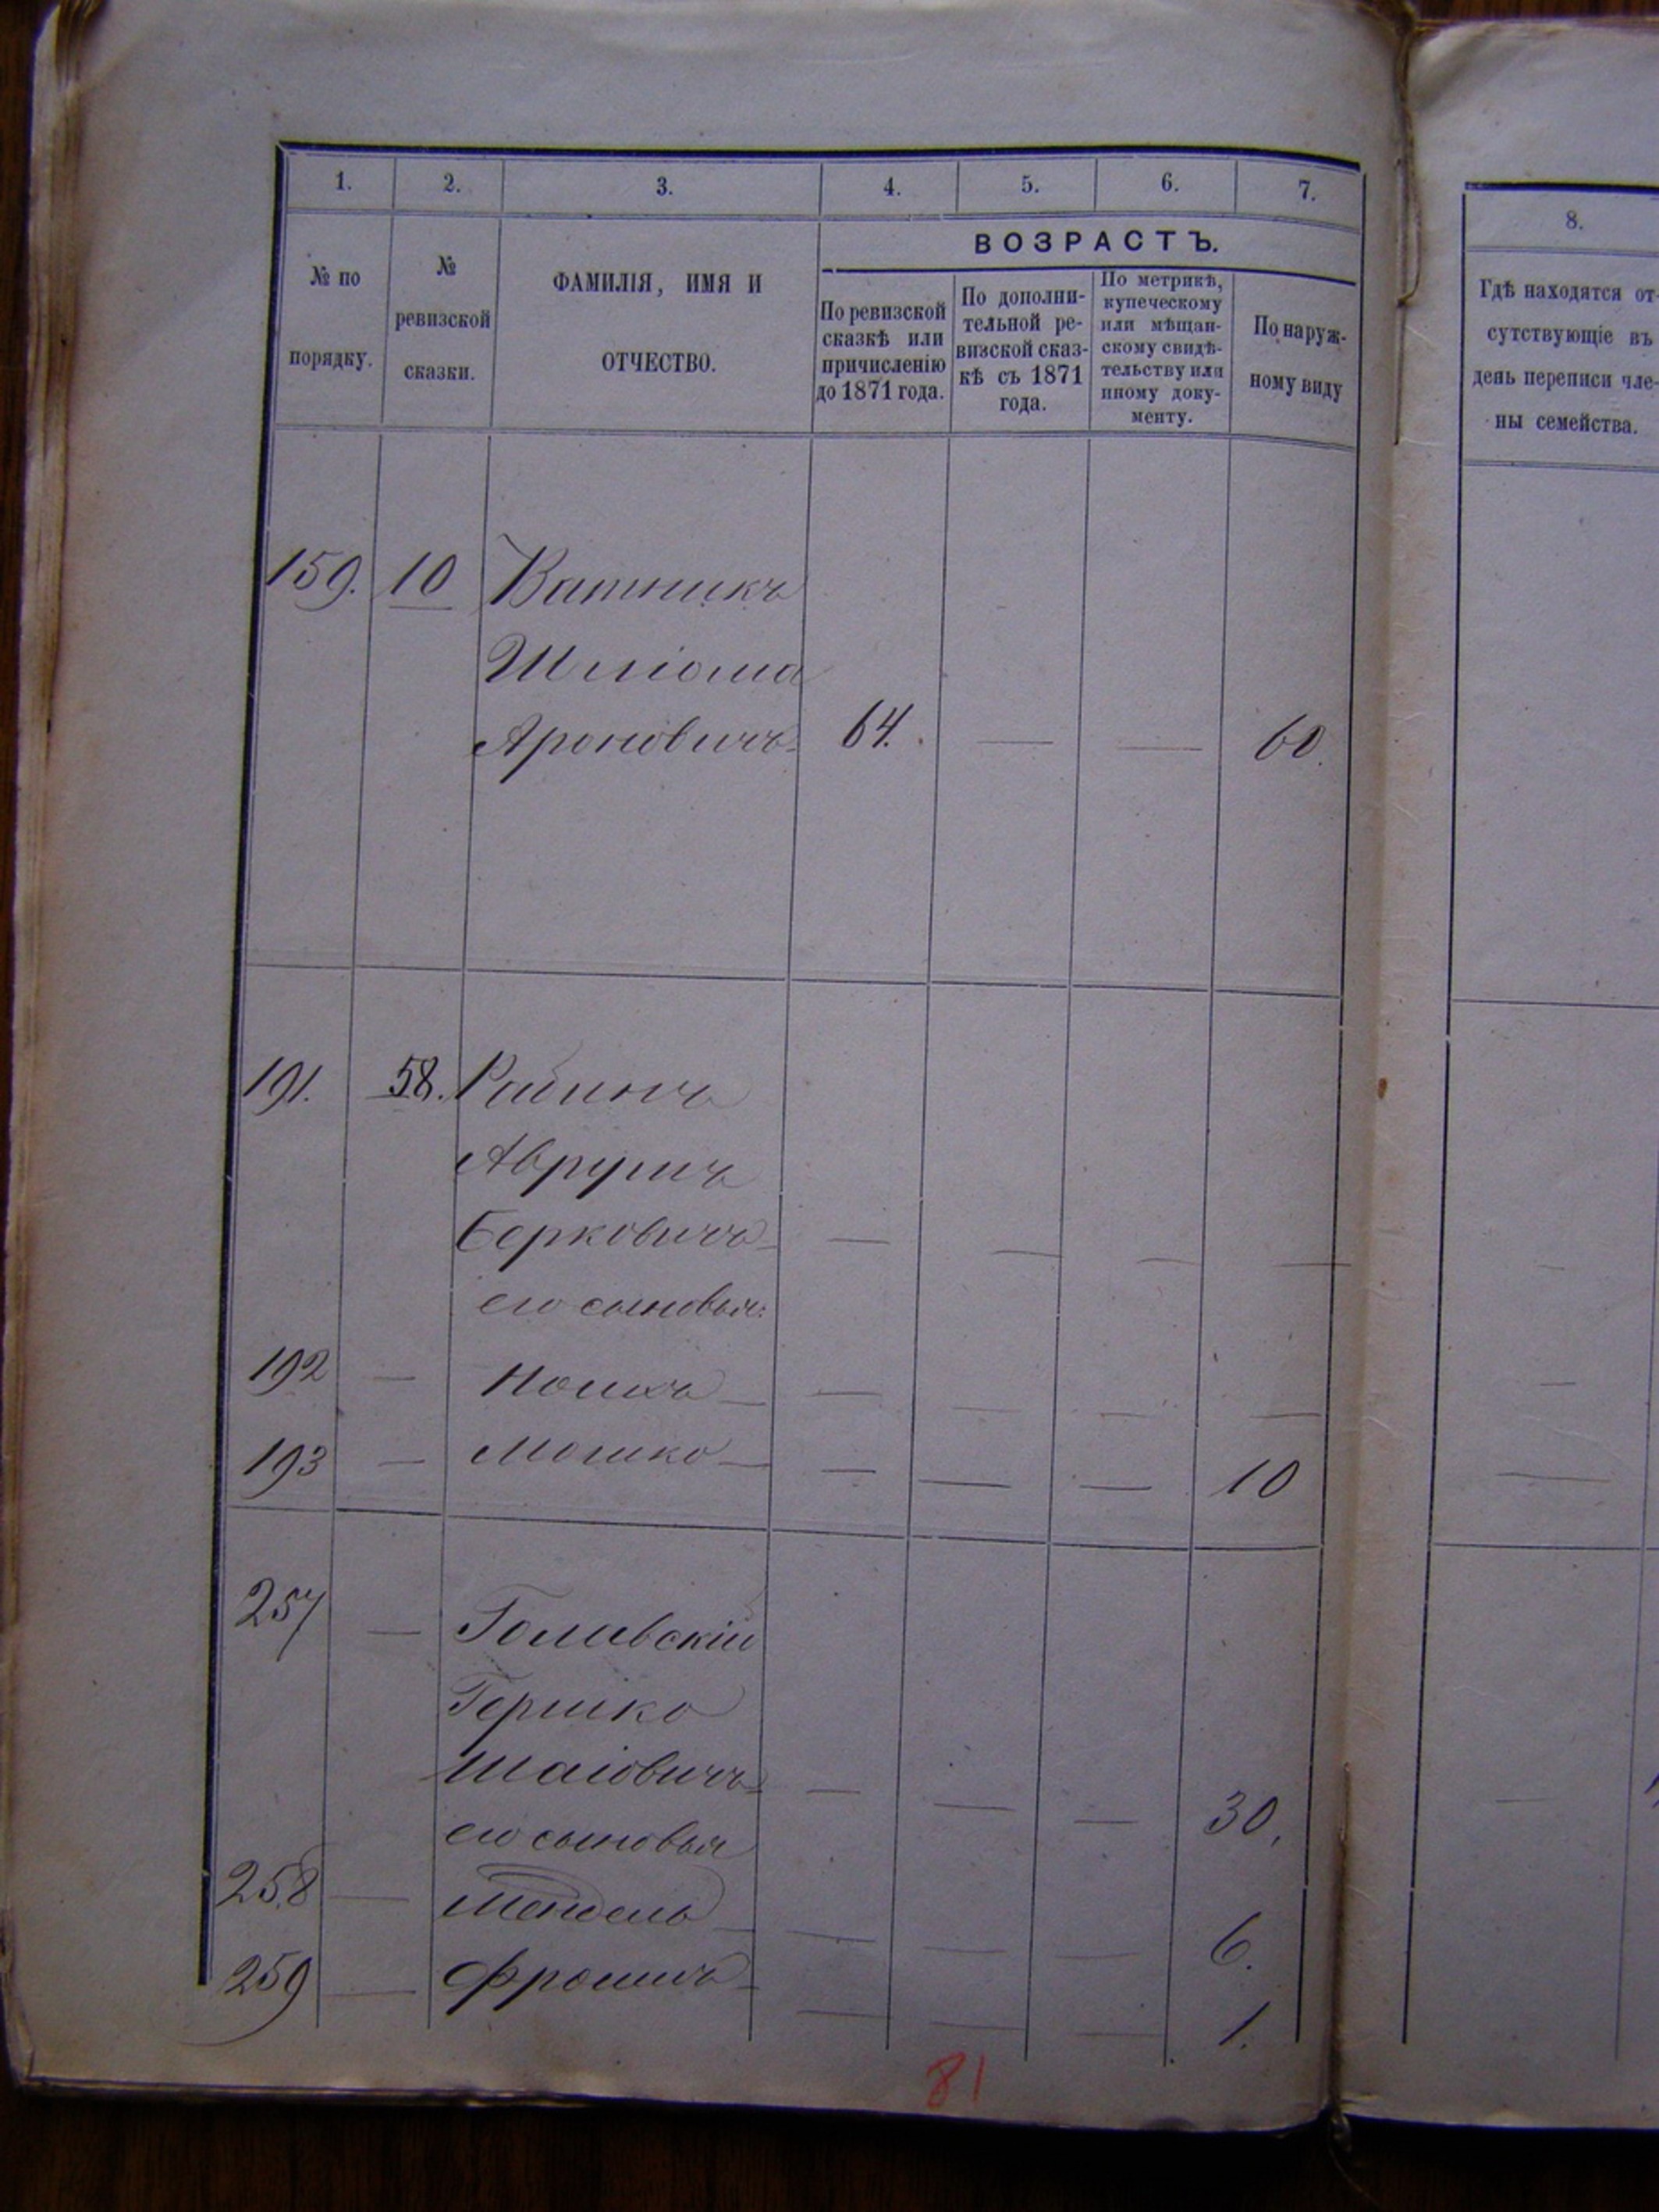 1. 2. 3. 4. 5. 6. 7.
ВОЗРАСТЪ.
№ по
порядку.
№
ревизской
сказки.
ФАМИЛІЯ, ИМЯ И
ОТЧЕСТВО.
По ревизской
сказкѣ или
причисленію
до 1871 года.
По дополни-
тельной ре-
визской сказ-
кѣ съ 1871
года.
По метрикѣ,
купеческому
или мѣщан-
скому свидѣ-
тельству или
иному доку-
менту.
По наруж-
ному виду
159. 10 Ватникъ
Шліома
Ароновичъ 64. — — 60.
191. 58. Рабинъ
Аврумъ
Берковичъ — — — —
его сыновья:
192 — — — — —
193 — Мошко — — — — 10
257 — Голавскій
Гершко
Шаіовичъ — — — 30.
его сыновья
258 — Мендель — — — 6.
259 — Фроимъ — — — 1.
81
8.
Гдѣ находятся от-
сутствующіе въ
день переписи чле-
ны семейства.
—
—
—
—